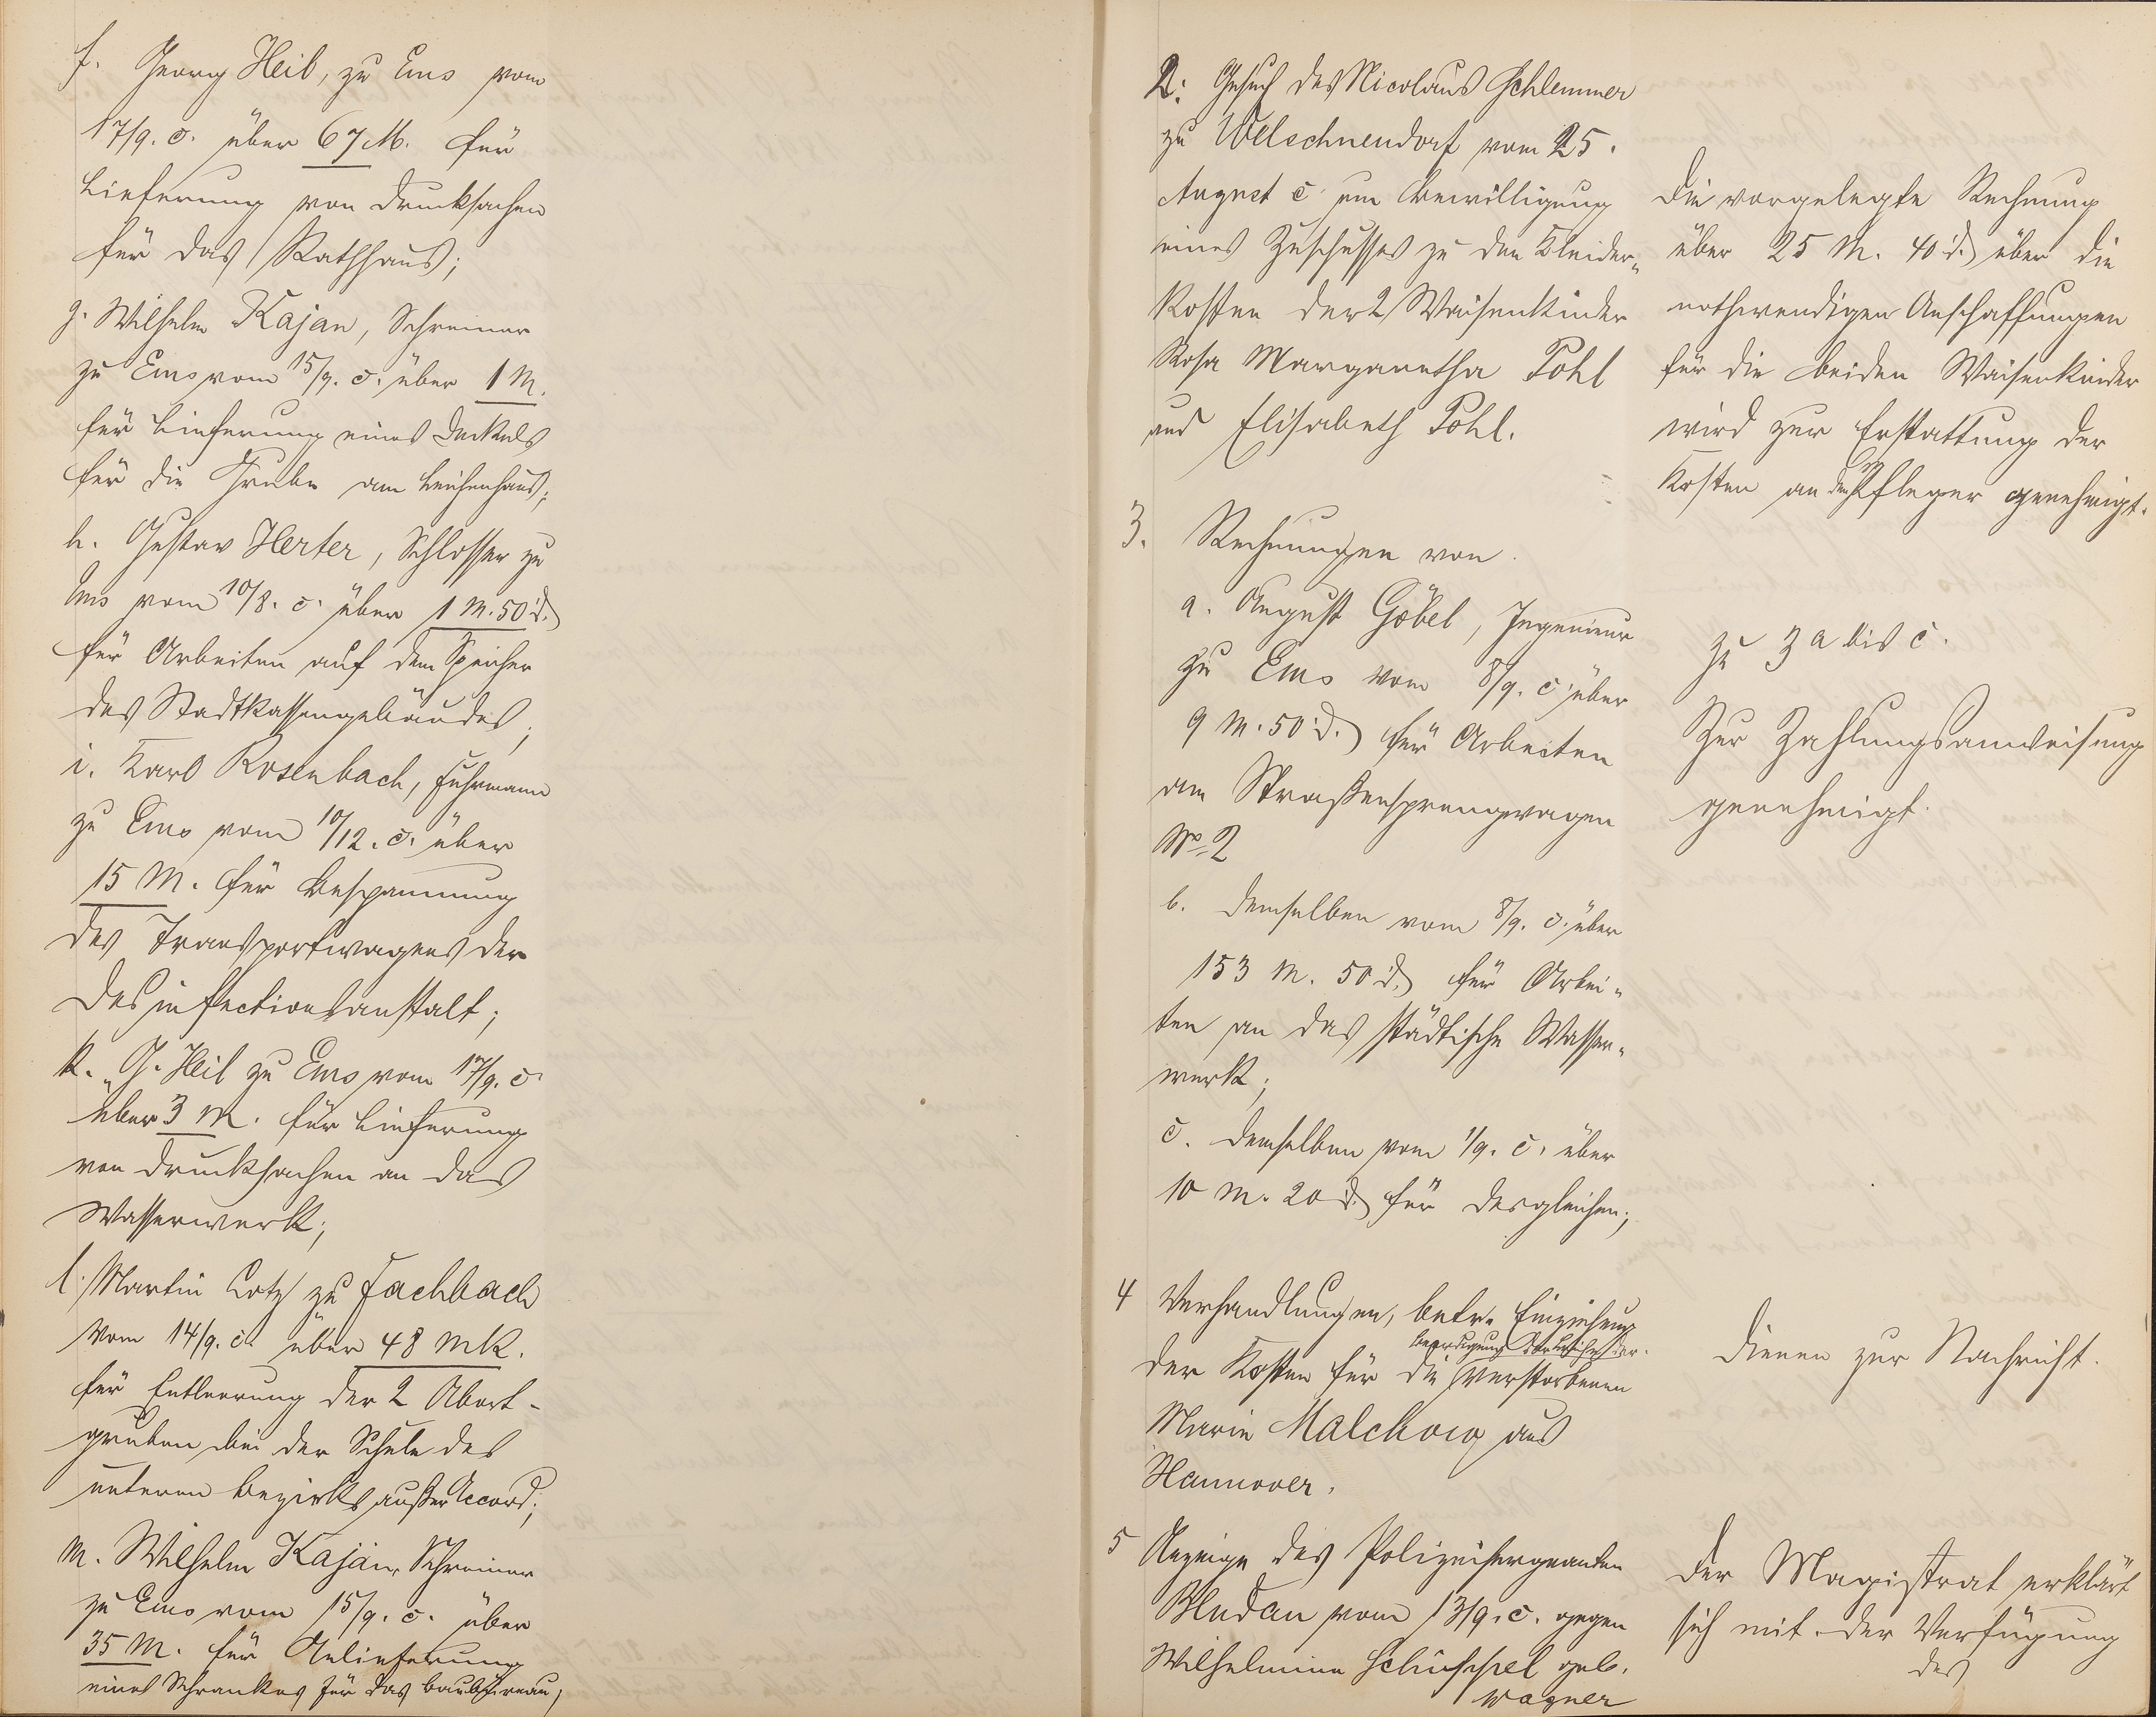 f. Georg Heil, zu Ems vom
17/9. c. über 67 M. für
Lieferung von Drucksachen
für das Rathhaus;
g. Wilhelm Kajan, Schreiner
zu Ems vom 15/9. c. über 1 M.
für Lieferung eines Deckels
für die Grube am Leichenhaus;
h. Gustav Herter, Schlosser zu
Ems vom 10/8. c. über 1 M. 50 d.
für Arbeiten auf dem Speicher
des Stadtkassengebäudes;
i. Karl Rosenbach, Fuhrmann
zu Ems vom 10/12. c. über
15 M. für Bespannung
des Transportwagens der
Desinfectionsanstalt;
k. G. Heil zu Ems vom 17/9. c.
über 3 M. für Lieferung
von Drucksachen an das
Wasserwerk;
l. Martin Lotz zu Fachbach
vom 14/9. c. über 48 Mk.
für Entleerung der 2 Abort-
gruben bei der Schule des
unteren Bezirks außer Accord;
m. Wilhelm Kajan, Schreiner
zu Ems vom 15/9. c. über
35 M. für Anlieferung
eines Schrankes für das Baubüreau;
2. Gesuch des Nicolaus Schlemmer
zu Welschneudorf vom 25.
August c. um Bewilligung
eines Zuschusses zu den Kleider-
kosten der 2 Waisenkinder
Rosa Margaretha Pohl
und Elisabeth Pohl.
Die vorgelegte Rechnung
über 25 M. 40 d. über die
nothwendigen Anschaffungen
für die beiden Waisenkinder
wird zur Erstattung der
Kosten an den Pfleger genehmigt.
3. Rechnungen von
a. August Göbel, Ingenieur
zu Ems vom 8/9. c. über
9 M. 50 d. für Arbeiten
am Straßensprengwagen
No 2
b. demselben vom 8/9. c. über
153 M. 50 d. für Arbei-
ten an das städtische Wasser-
werk;
c. demselben vom 1/9. c. über
10 M. 20 d. für desgleichen;
zu 3 a bis c.
Zur Zahlungsanweisung
genehmigt.
4 Verhandlungen, betr. Einziehung
der Kosten für die Beerdigung der verstorbenen
Marie Malchow aus
Hannover.
Dienen zur Nachricht.
5 Anzeige des Polizeisergeanten
Bludau vom 13/9. c. gegen
Wilhelmine geb.
Wagner
Der Magistrat erklärt
sich mit der Verfügung
des